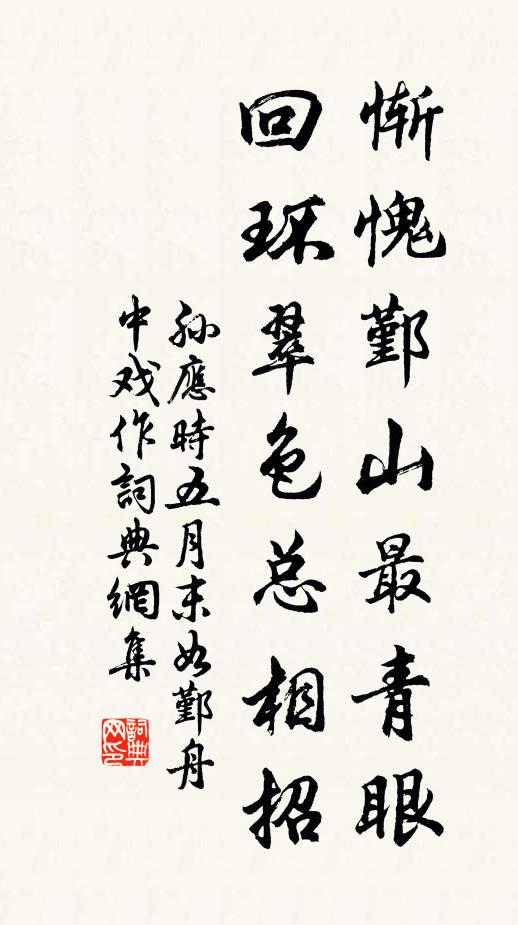 惭愧鄞山最青眼
回环翠色总相招
孙應時五月末如鄞舟
中戏作詞典網集
詞典
网印